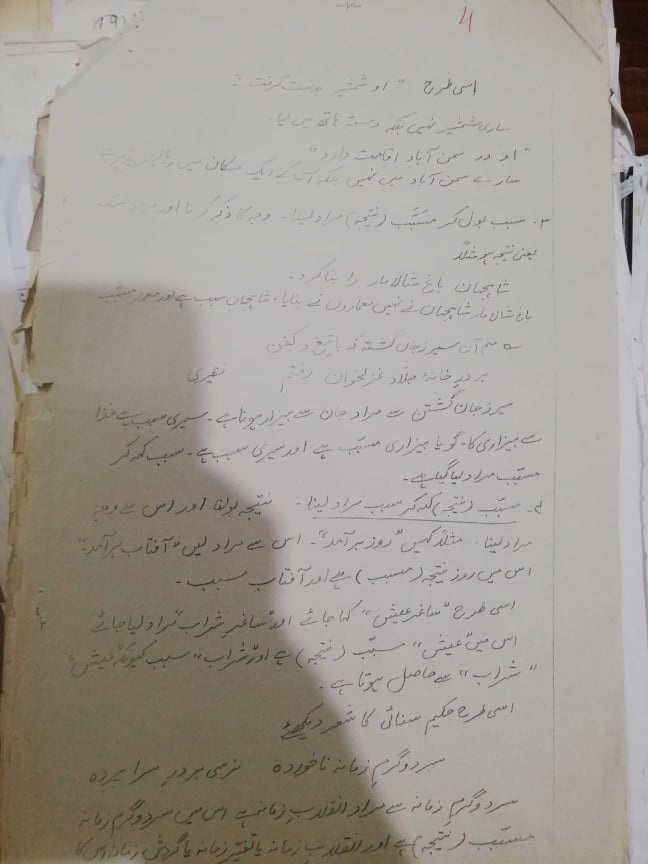 -۳-
4
(19
اسی طرح " او شمشیر بدست گرفت "
ساری شمشیر نہیں بلکہ دستہ ہاتھ میں لیا۔
" او در سمن آباد اقامت دارد "
سارے سمن آباد میں نہیں بلکہ اس کے ایک مکان میں
۳۔ سبب بول کر مسَبَّب (نتیجہ) مراد لینا۔ وجہ کا ذکر کرنا اور مراد
یعنی نتیجہ ہو مثلاً
شاہجہان باغ شالامار را بنا کرد۔
باغ شالامار شاہجہان نے نہیں معماروں نے بنایا، شاہجہاں سبب ہے اور معمار مسبّب
؎ منم آن سیر ز جان گشتہ کہ با تیغ و کفن
بر درِ خانۂ جلاد غزلخوان رفتم نظیری
سیر ز جان گشتن سے مراد جان سے بیزار ہونا ہے۔ سیری سبب ہے غذا
سے بیزاری کا۔ گویا بیزاری مسبّب ہے اور سیری سبب ہے۔ سبب کہہ کر
مسبّب مراد لیا گیا ہے۔
۴۔ مسبّب (نتیجہ) کہہ کر سبب مراد لینا۔ نتیجہ بولنا اور اس سے وجہ
مراد لینا۔ مثلاً کہیں "روز برآمد"۔ اس سے مراد لیں "آفتاب برآمد"
اس میں روز نتیجہ (مسبب) ہے اور آفتاب سبب۔
اسی طرح "ساغرِ عیش" کہا جائے اور "ساغرِ شراب" مراد لیا جائے
اس میں "عیش" مسبّب (نتیجہ) ہے اور "شراب" سبب کیونکہ "عیش"
"شراب" سے حاصل ہوتا ہے۔
اسی طرح حکیم سنائی کا شعر دیکھئے
سرد و گرمِ زمانہ ناخوردہ نرسی بر درِ سرا پردہ
سرد و گرمِ زمانہ سے مراد انقلابِ زمانہ ہے اس میں سرد و گرمِ زمانہ
مسبّب (نتیجہ) ہے اور انقلابِ زمانہ یا تغیّرِ زمانہ یا گردشِ زمانہ اس کا